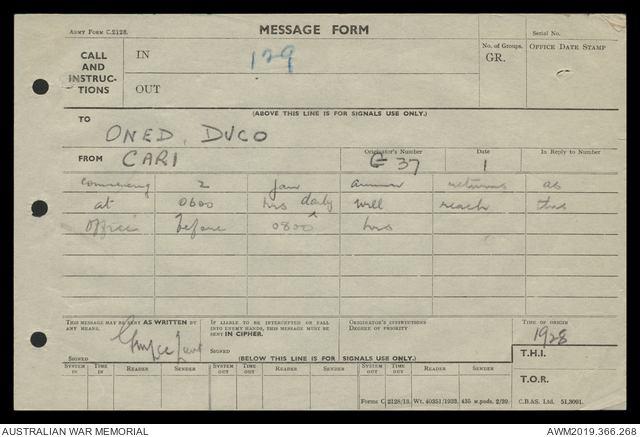 ARMY FORM C.2128.
MESSAGE FORM
Serial No.
CALL AND INSTRUC-TIONS
IN
129
No. of Groups.
GR.
OFFICE DATE STAMP
OUT
(ABOVE THIS LINE IS FOR SIGNALS USE ONLY.)
TO
ONED. DUCO
FROM
CARI
Originator's Number
G 37
Date
1
In Reply to Number
commencing 2 Jan ammn returns as
at 0600 hrs daily will reach this
office before 0800 hrs
THIS MESSAGE MAY BE SENT AS WRITTEN BY ANY MEANS.
IF LIABLE TO BE INTERCEPTED OR FALL INTO ENEMY HANDS, THIS MESSAGE MUST BE SENT IN CIPHER.
ORIGINATOR'S INSTRUCTIONS
DEGREE OF PRIORITY
TIME OF ORIGIN
1928
SIGNED
SIGNED
(BELOW THIS LINE IS FOR SIGNALS USE ONLY.)
T.H.I.
SYSTEM IN
TIME IN
READER
SENDER
SYSTEM OUT
TIME OUT
READER
SENDER
SYSTEM OUT
TIME OUT
READER
SENDER
T.O.R.
Forms C 2128/13. Wt. 40351/1933. 435 m.pads. 2/39. C.B.&S. Ltd. 51,9091.
AUSTRALIAN WAR MEMORIAL
AWM2019.366.268